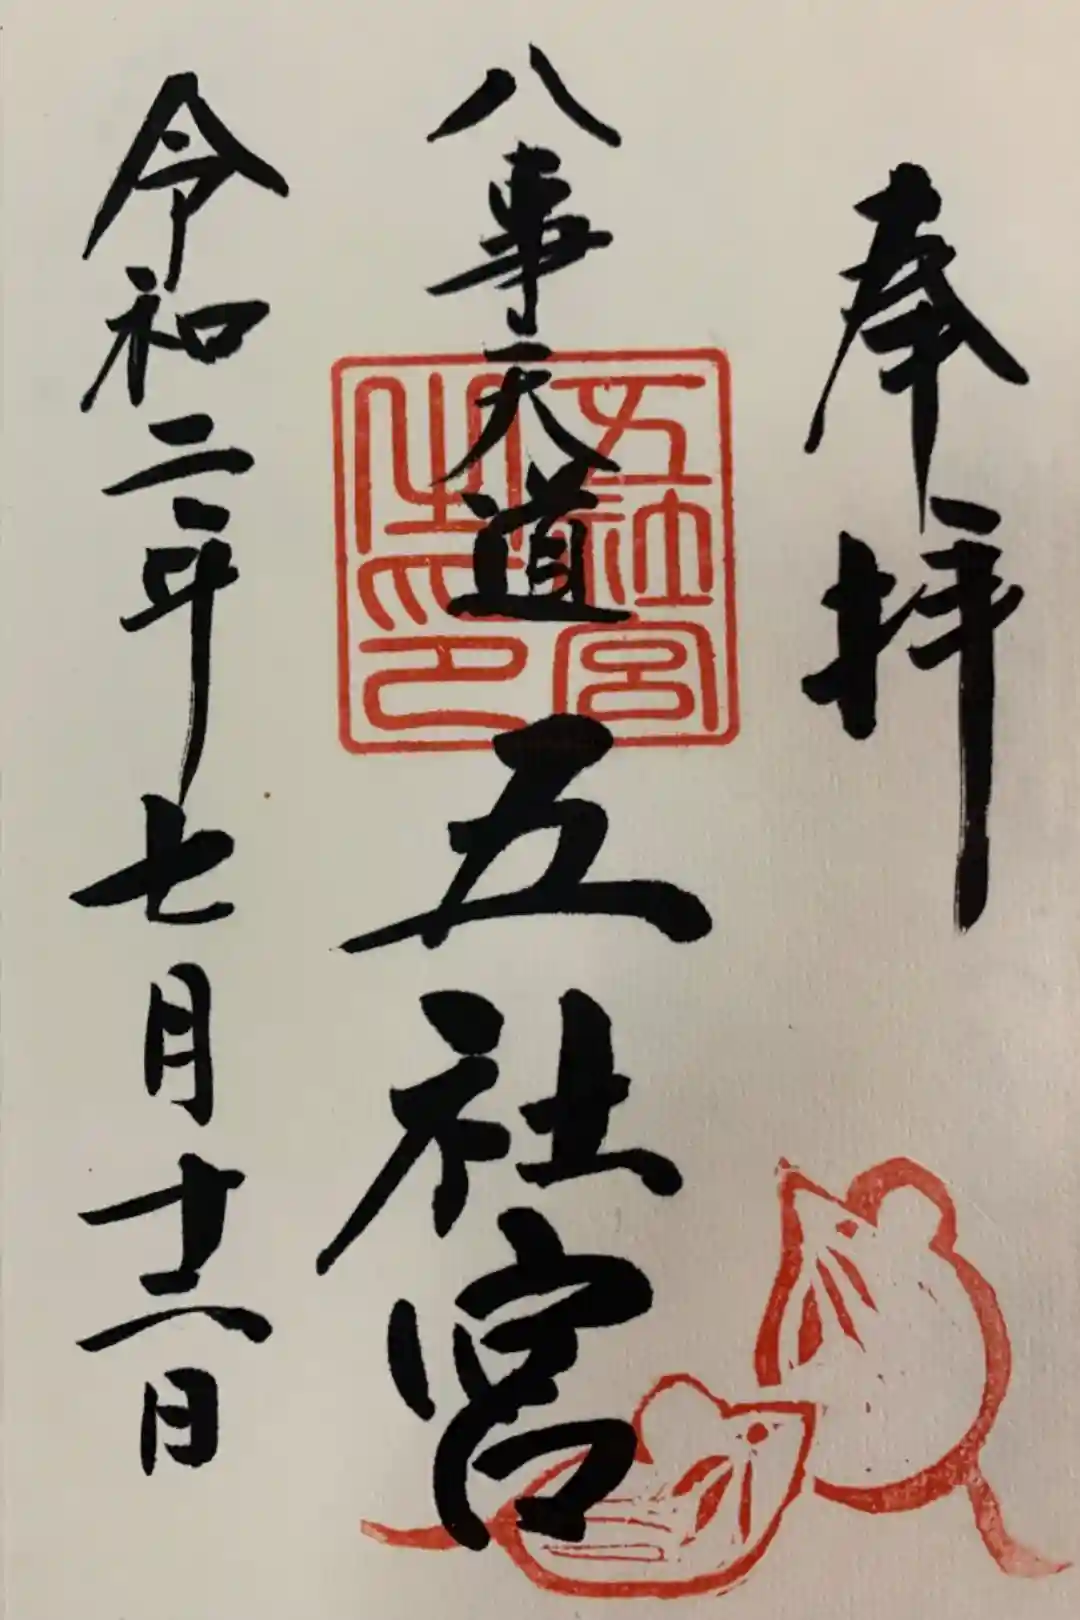 奉拝
八事天道
五社宮
五社宮
之印
令和二年七月十二日